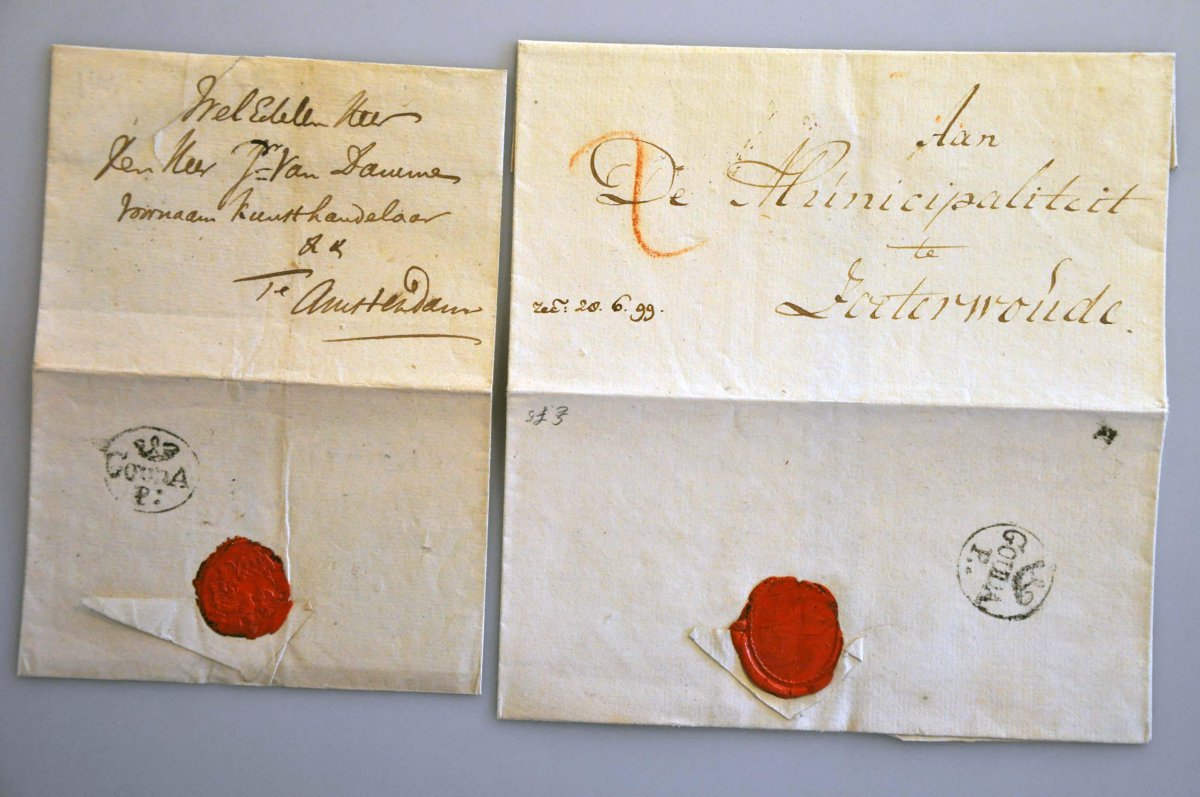 Wel Edelen Heer
Den Heer Jr. Van Damme
Voornaam Kunsthandelaar
& &
Te Amsterdam
GOUDA
P:
Aan
De Municipaliteit
te
Zoeterwoude.
recd: 28. 6. 99.
GOUDA
P: